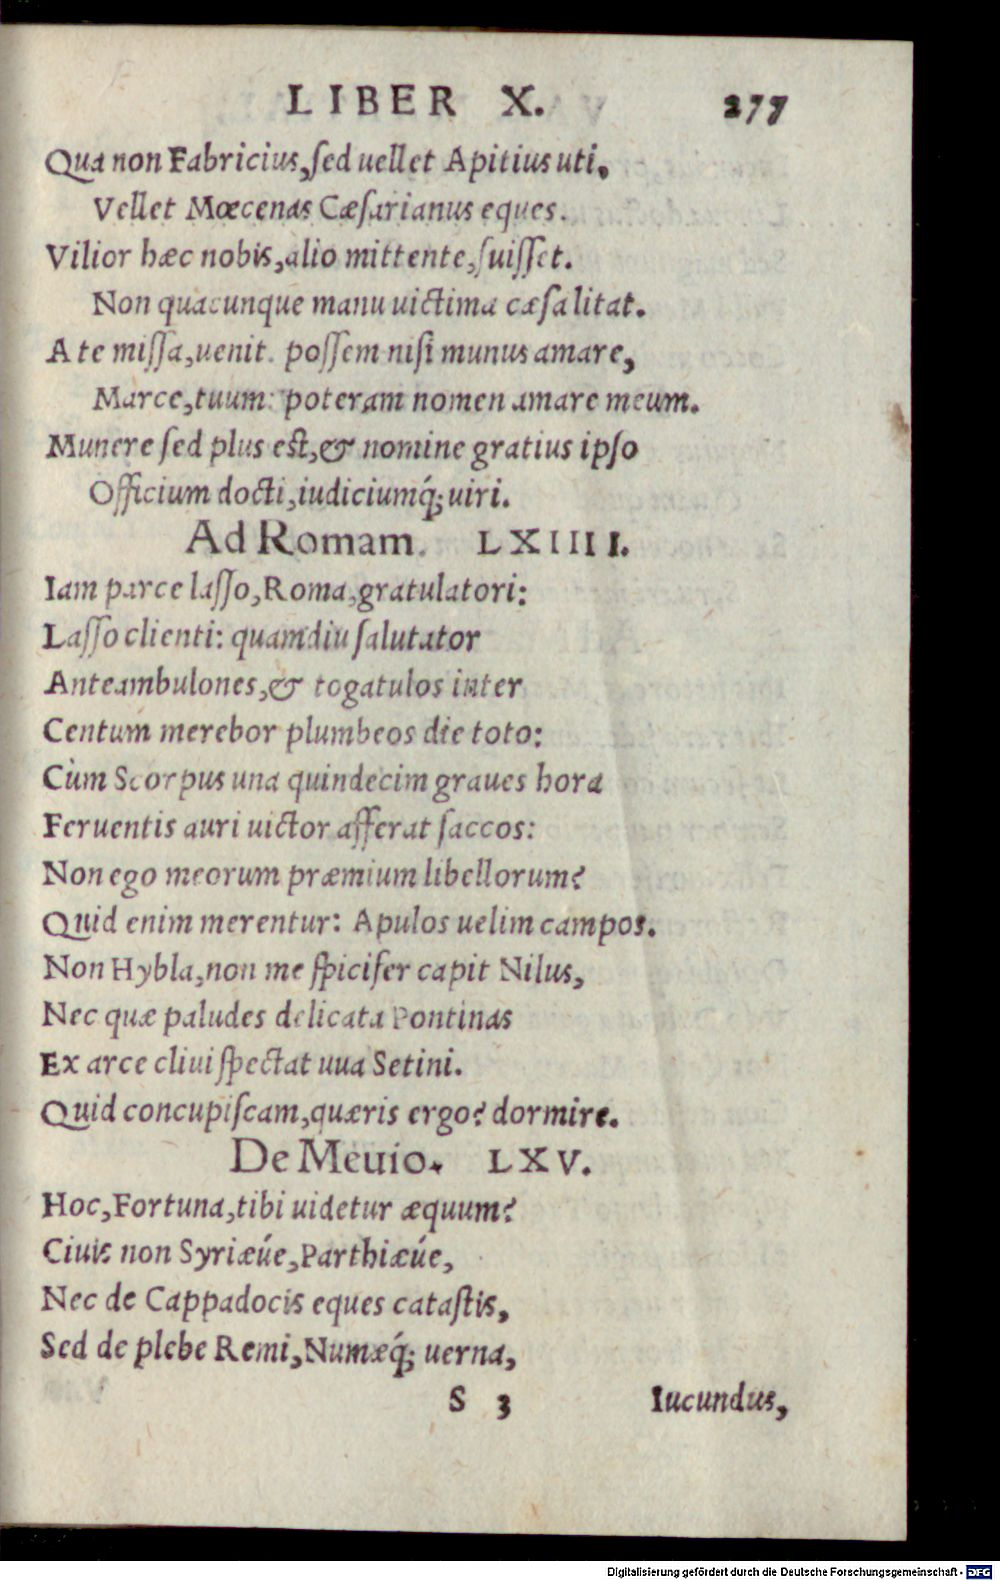 LIBER X. 277
Qua non Fabricius, sed uellet Apitius uti.
Vellet Mœcenas Cæsarianus eques.
Vilior hæc nobis, alio mittente, fuisset.
Non quacunque manu uictima cæsa litat.
A te missa, uenit. possem nisi munus amare,
Marce, tuum: poteram nomen amare meum.
Munere sed plus est, & nomine gratius ipso
Officium docti, iudiciumq́; uiri.
Ad Romam. LXIIII.
Iam parce lasso, Roma, gratulatori:
Lasso clienti: quamdiu salutator
Anteambulones, & togatulos inter
Centum merebor plumbeos die toto:
Cùm Scorpus una quindecim graues hora
Feruentis auri uictor afferat saccos:
Non ego meorum præmium libellorum?
Quid enim merentur: Apulos uelim campos.
Non Hybla, non me spicifer capit Nilus,
Nec quæ paludes delicata Pontinas
Ex arce cliui spectat uua Setini.
Quid concupiscam, quæris ergo? dormire.
De Meuio. LXV.
Hoc, Fortuna, tibi uidetur æquum?
Ciuis non Syriæúe, Parthiæúe,
Nec de Cappadocis eques catastis,
Sed de plebe Remi, Numæq́; uerna,
S 3 Iucundus,
Digitalisierung gefördert durch die Deutsche Forschungsgemeinschaft - DFG